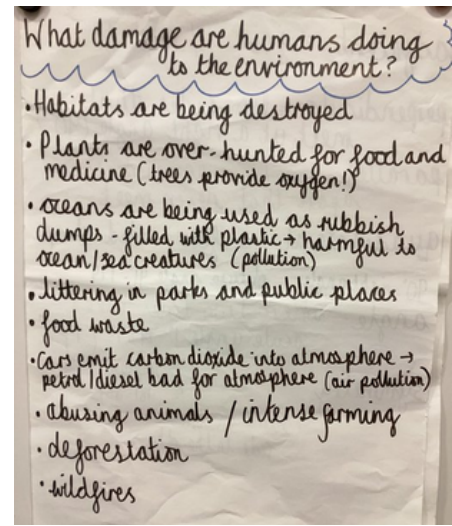 What damage are humans doing
to the environment?
• Habitats are being destroyed
• Plants are over-hunted for food and
medicine (trees provide oxygen!)
• oceans are being used as rubbish
dumps - filled with plastic → harmful to
ocean/sea creatures (pollution)
• littering in parks and public places
• food waste
• Cars emit carbon dioxide into atmosphere →
petrol/diesel bad for atmosphere (air pollution)
• abusing animals / intense farming
• deforestation
• wildfires